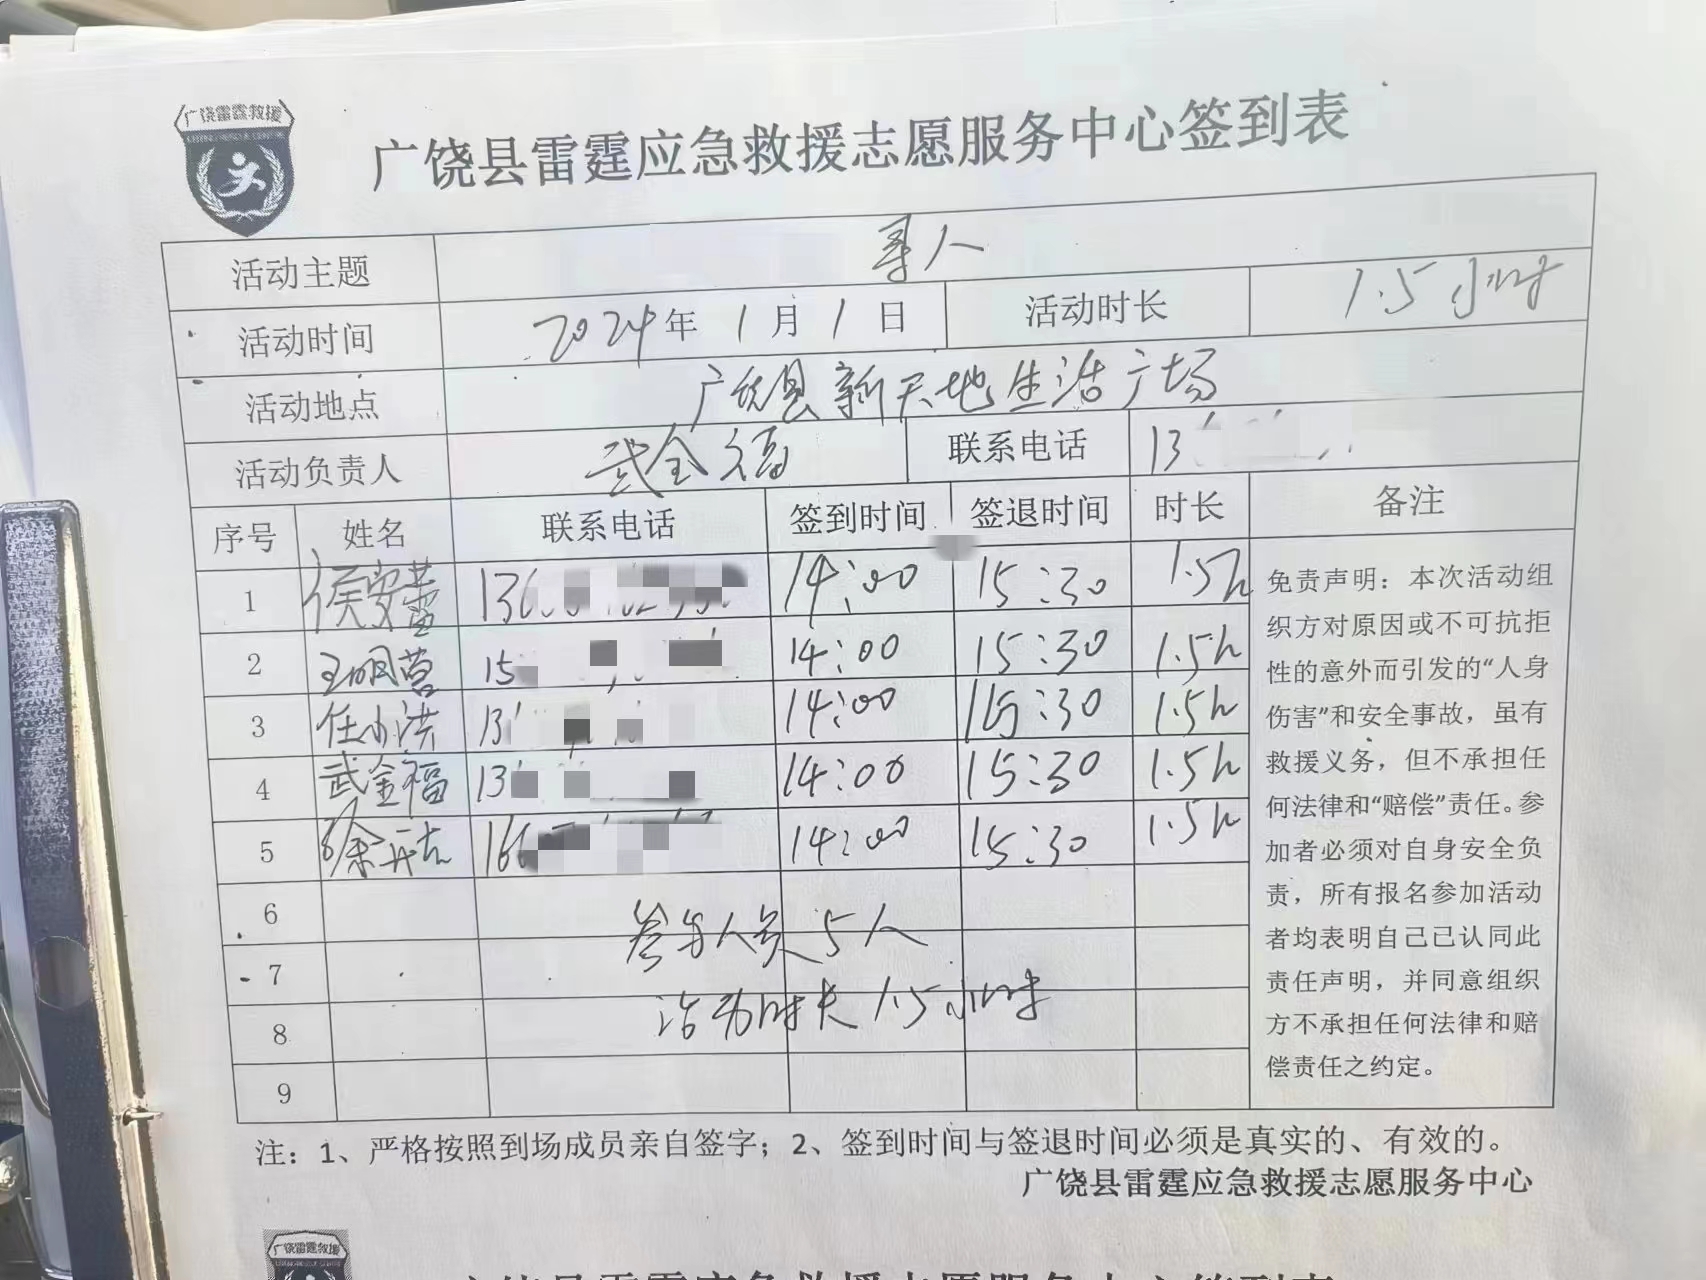 广饶雷霆救援
广饶县雷霆应急救援志愿服务中心签到表
活动主题 寻人
活动时间 2024年1月1日 活动时长 1.5小时
活动地点 广饶县新天地生活广场
活动负责人 武金福 联系电话 13
序号 姓名 联系电话 签到时间 签退时间 时长 备注
1 侯安蕾 136 14:00 15:30 1.5h
2 王明营 15 14:00 15:30 1.5h
3 任小洪 13 14:00 15:30 1.5h
4 武金福 13 14:00 15:30 1.5h
5 徐开吉 166 14:00 15:30 1.5h
6
7
8
9
参与人员5人
活动时长1.5小时
免责声明：本次活动组
织方对原因或不可抗拒
性的意外而引发的“人身
伤害”和安全事故，虽有
救援义务，但不承担任
何法律和“赔偿”责任。参
加者必须对自身安全负
责，所有报名参加活动
者均表明自己已认同此
责任声明，并同意组织
方不承担任何法律和赔
偿责任之约定。
注：1、严格按照到场成员亲自签字；2、签到时间与签退时间必须是真实的、有效的。
广饶县雷霆应急救援志愿服务中心
广饶雷霆救援
广饶县雷霆应急救援志愿服务中心签到表